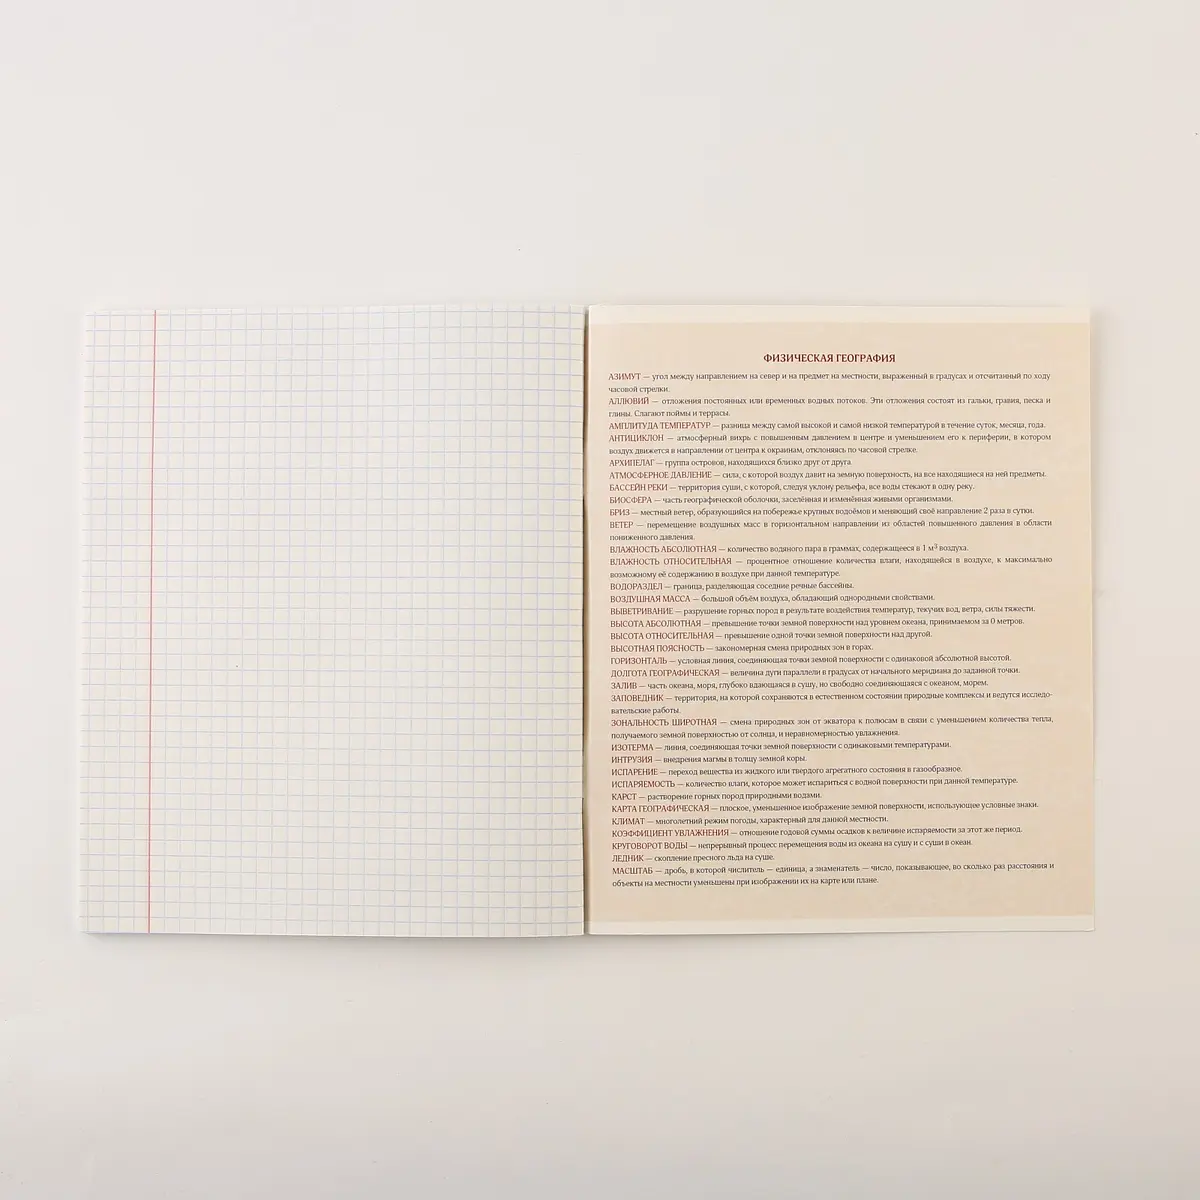 ФИЗИЧЕСКАЯ ГЕОГРАФИЯ
АЗИМУТ — угол между направлением на север и на предмет на местности, выраженный в градусах и отсчитанный по ходу
часовой стрелки.
АЛЛЮВИЙ — отложения постоянных или временных водных потоков. Эти отложения состоят из гальки, гравия, песка и
глины. Слагают поймы и террасы.
АМПЛИТУДА ТЕМПЕРАТУР — разница между самой высокой и самой низкой температурой в течение суток, месяца, года.
АНТИЦИКЛОН — атмосферный вихрь с повышенным давлением в центре и уменьшением его к периферии, в котором
воздух движется в направлении от центра к окраинам, отклоняясь по часовой стрелке.
АРХИПЕЛАГ — группа островов, находящихся близко друг от друга.
АТМОСФЕРНОЕ ДАВЛЕНИЕ — сила, с которой воздух давит на земную поверхность, на все находящиеся на ней предметы.
БАССЕЙН РЕКИ — территория суши, с которой, следуя уклону рельефа, все воды стекают в одну реку.
БИОСФЕРА — часть географической оболочки, заселённая и изменённая живыми организмами.
БРИЗ — местный ветер, образующийся на побережье крупных водоёмов и меняющий своё направление 2 раза в сутки.
ВЕТЕР — перемещение воздушных масс в горизонтальном направлении из областей повышенного давления в области
пониженного давления.
ВЛАЖНОСТЬ АБСОЛЮТНАЯ — количество водяного пара в граммах, содержащееся в 1 м³ воздуха.
ВЛАЖНОСТЬ ОТНОСИТЕЛЬНАЯ — процентное отношение количества влаги, находящейся в воздухе, к максимально
возможному её содержанию в воздухе при данной температуре.
ВОДОРАЗДЕЛ — граница, разделяющая соседние речные бассейны.
ВОЗДУШНАЯ МАССА — большой объём воздуха, обладающий однородными свойствами.
ВЫВЕТРИВАНИЕ — разрушение горных пород в результате воздействия температур, текучих вод, ветра, силы тяжести.
ВЫСОТА АБСОЛЮТНАЯ — превышение точки земной поверхности над уровнем океана, принимаемом за 0 метров.
ВЫСОТА ОТНОСИТЕЛЬНАЯ — превышение одной точки земной поверхности над другой.
ВЫСОТНАЯ ПОЯСНОСТЬ — закономерная смена природных зон в горах.
ГОРИЗОНТАЛЬ — условная линия, соединяющая точки земной поверхности с одинаковой абсолютной высотой.
ДОЛГОТА ГЕОГРАФИЧЕСКАЯ — величина дуги параллели в градусах от начального меридиана до заданной точки.
ЗАЛИВ — часть океана, моря, глубоко вдающаяся в сушу, но свободно соединяющаяся с океаном, морем.
ЗАПОВЕДНИК — территория, на которой сохраняются в естественном состоянии природные комплексы и ведутся исследо-
вательские работы.
ЗОНАЛЬНОСТЬ ШИРОТНАЯ — смена природных зон от экватора к полюсам в связи с уменьшением количества тепла,
получаемого земной поверхностью от солнца, и неравномерностью увлажнения.
ИЗОТЕРМА — линия, соединяющая точки земной поверхности с одинаковыми температурами.
ИНТРУЗИЯ — внедрения магмы в толщу земной коры.
ИСПАРЕНИЕ — переход вещества из жидкого или твердого агрегатного состояния в газообразное.
ИСПАРЯЕМОСТЬ — количество влаги, которое может испариться с водной поверхности при данной температуре.
КАРСТ — растворение горных пород природными водами.
КАРТА ГЕОГРАФИЧЕСКАЯ — плоское, уменьшенное изображение земной поверхности, использующее условные знаки.
КЛИМАТ — многолетний режим погоды, характерный для данной местности.
КОЭФФИЦИЕНТ УВЛАЖНЕНИЯ — отношение годовой суммы осадков к величине испаряемости за этот же период.
КРУГОВОРОТ ВОДЫ — непрерывный процесс перемещения воды из океана на сушу и с суши в океан.
ЛЕДНИК — скопление пресного льда на суше.
МАСШТАБ — дробь, в которой числитель — единица, а знаменатель — число, показывающее, во сколько раз расстояния и
объекты на местности уменьшены при изображении их на карте или плане.